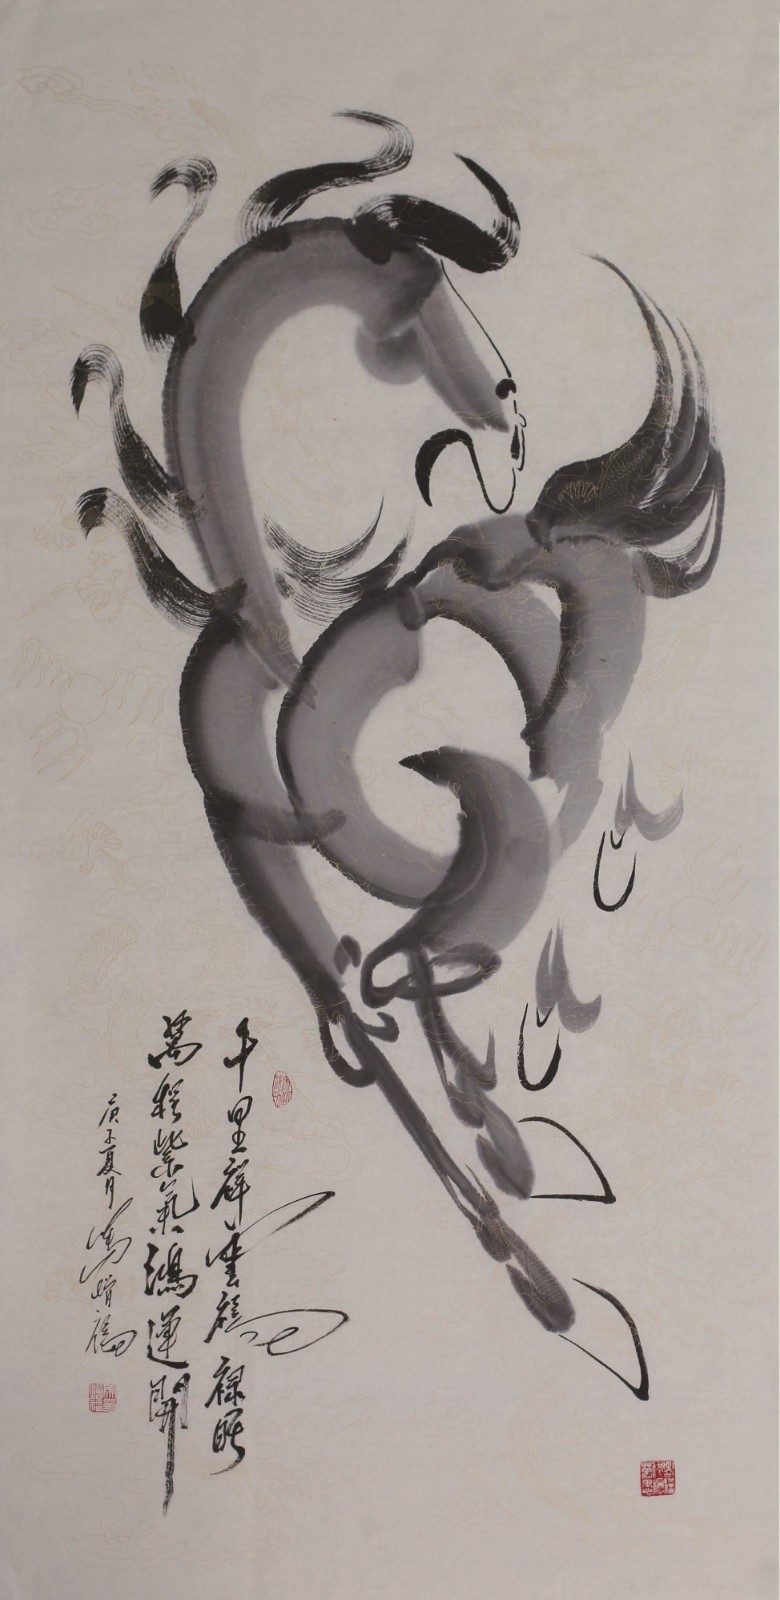 千里祥雲福祿旺
萬程紫氣鴻運開
庚子夏月馮增福